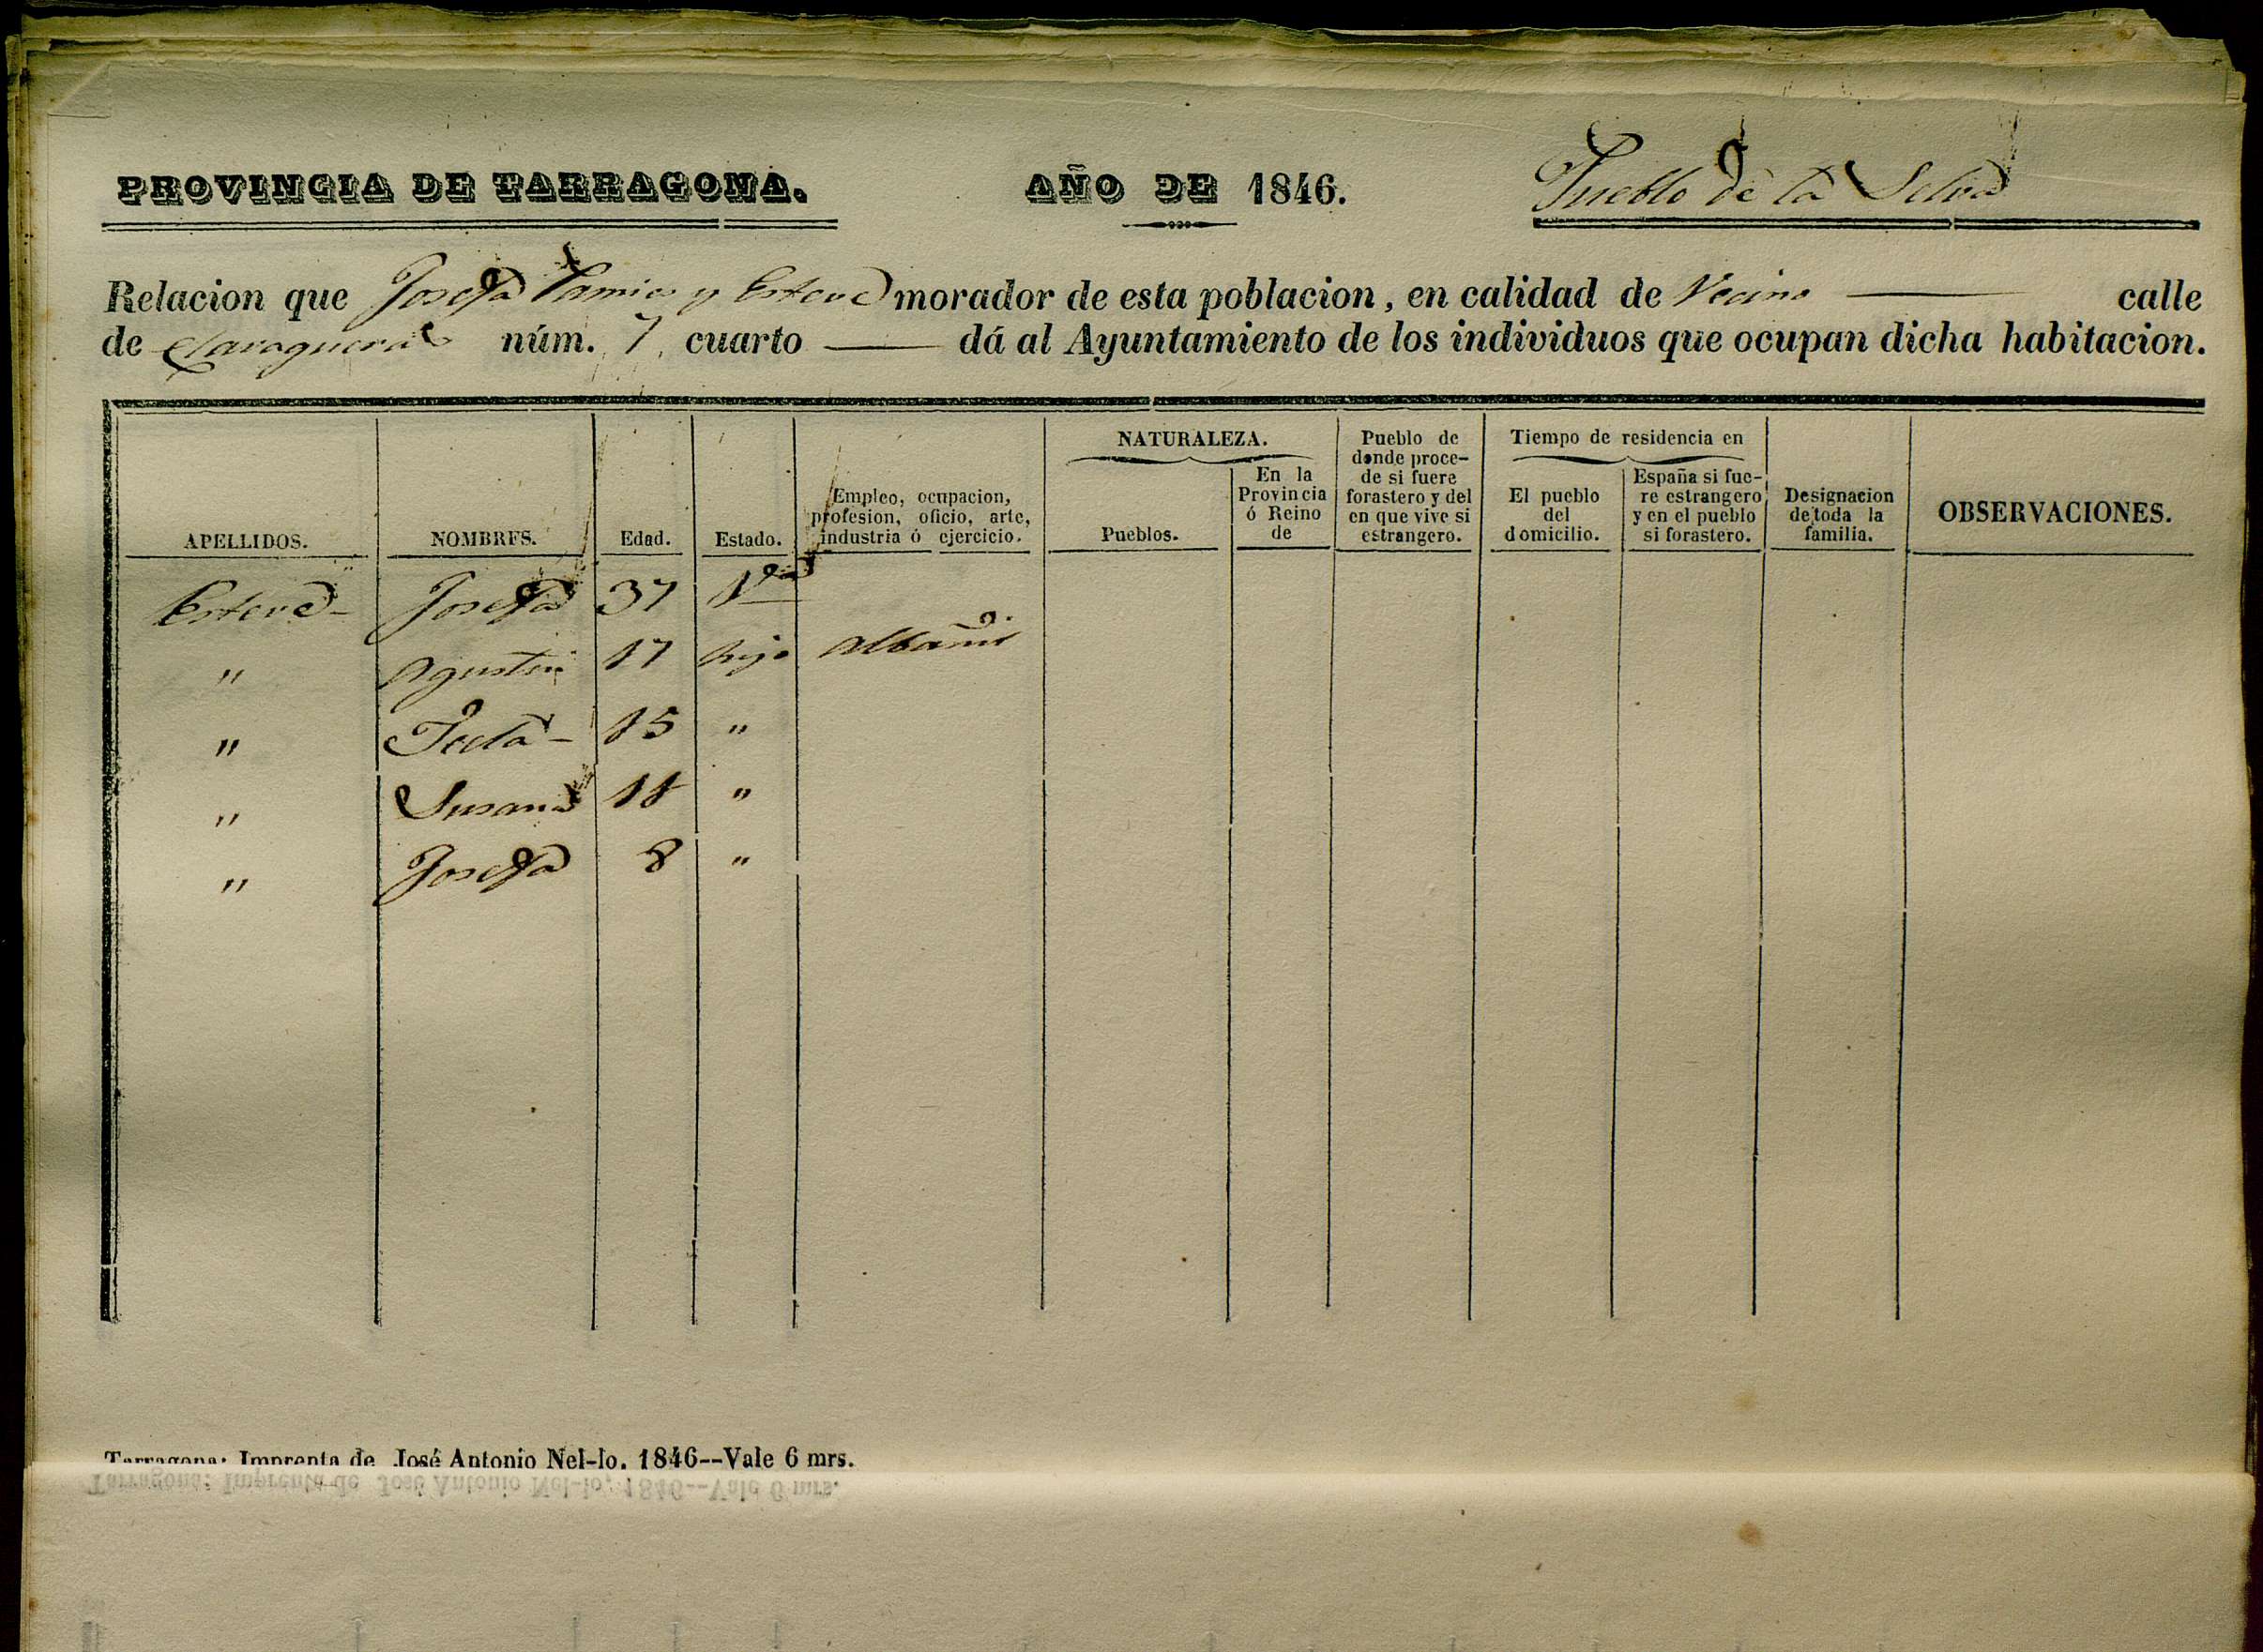 PROVINCIA DE TARRAGONA. AÑO DE 1846. Pueblo de la Selva
Relacion que Josefa y Esteve morador de esta poblacion, en calidad de Vecino calle
de núm. 7 cuarto dá al Ayuntamiento de los individuos que ocupan dicha habitacion.
APELLIDOS. NOMBRES. Edad. Estado. Empleo, ocupacion, profesion, oficio, arte, industria ó ejercicio. NATURALEZA. Pueblos. En la Provincia ó Reino de Pueblo de donde procede si fuere forastero y del en que vive si estrangero. Tiempo de residencia en El pueblo del domicilio. España si fuere estrangero y en el pueblo si forastero. Designacion de toda la familia. OBSERVACIONES.
Esteve Josefa 37 Vda
" Agustin 17 hijo Albañil
" Tecla 15 "
" Susana "
" Josefa 8 "
Tarragona: Imprenta de José Antonio Nel-lo. 1846--Vale 6 mrs.